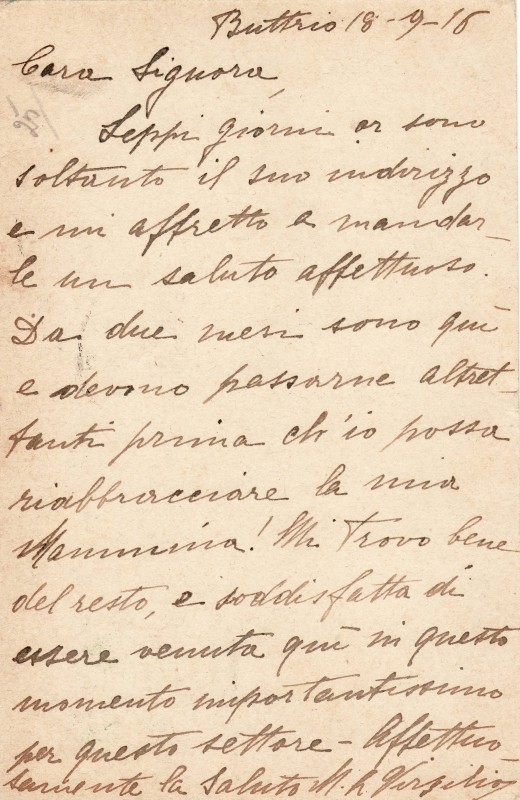 Buttrio 18-9-16
Cara Signora,
Seppi giorni or sono
soltanto il suo indirizzo
e mi affretto a mandar-
le un saluto affettuoso.
Da due mesi sono quì
e devono passarne altret-
tanti prima ch'io possa
riabbracciare la mia
Mammina! Mi trovo bene
del resto, e soddisfatta di
essere venuta quì in questo
momento importantissimo
per questo settore - Affettuo-
samente la saluto M. R. Virgilio